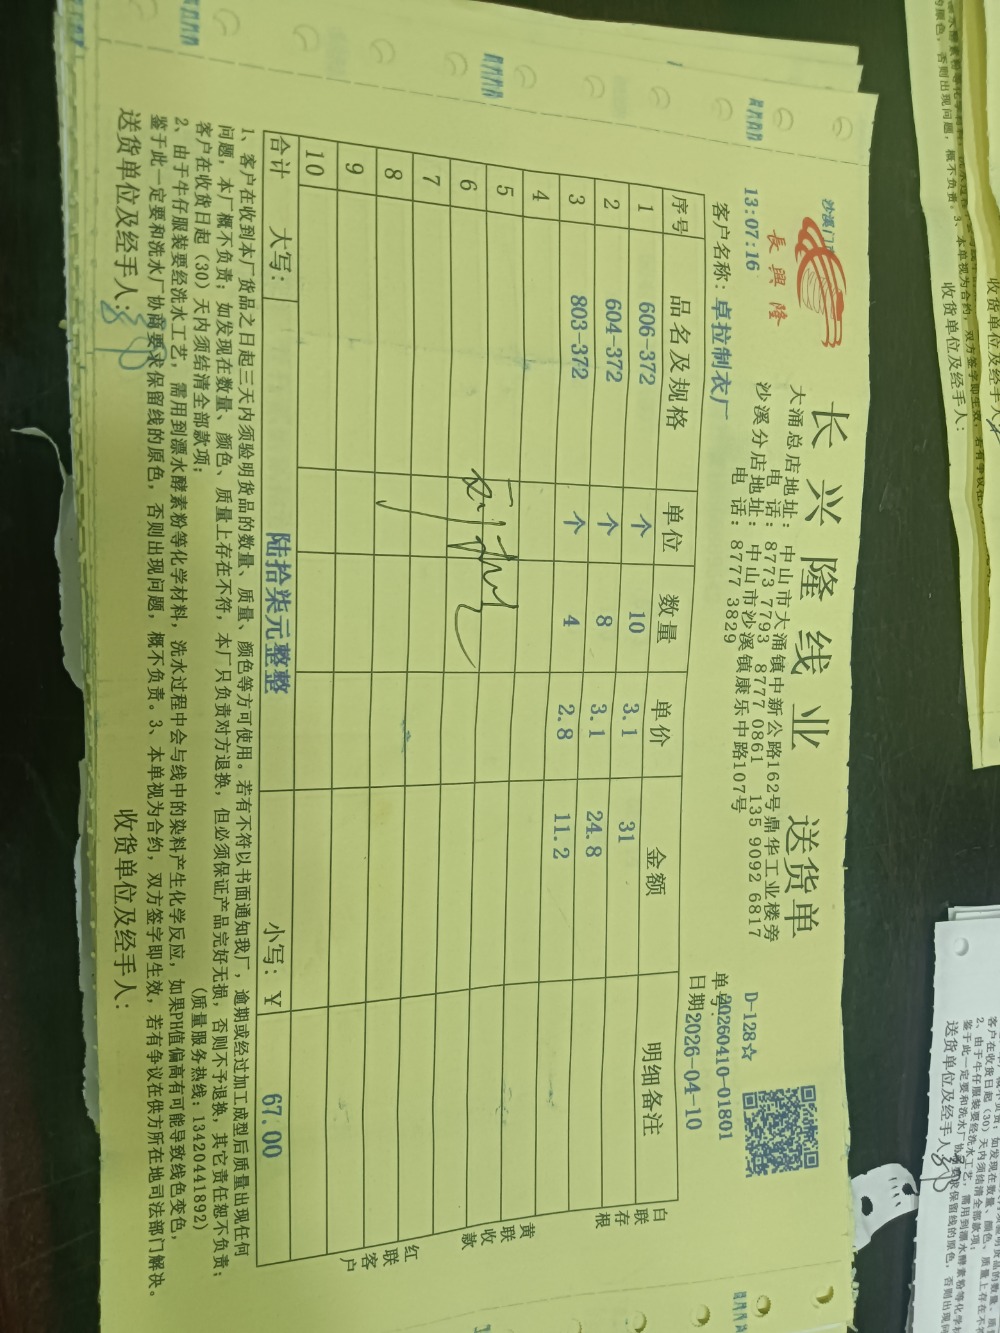 沙溪门市
長興隆
长兴隆线业 送货单
大涌总店地址: 中山市大涌镇中新公路162号鼎华工业楼旁
电 话: 8773 7793 8777 0861 135 9092 6817
沙溪分店地址: 中山市沙溪镇康乐中路107号
电 话: 8777 3829
13:07:16
D-128☆
单号:20260410-01801
客户名称: 卓拉制衣厂
日期2026-04-10
序号 品名及规格 单位 数量 单价 金额 明细备注
1 606-372 个 10 3.1 31
2 604-372 个 8 3.1 24.8
3 803-372 个 4 2.8 11.2
4
5
6
7
8
9
10
合计 大写: 陆拾柒元整整 小写: ¥ 67.00
白联存根
黄联收款
红联客户
1、客户在收到本厂货品之日起三天内须验明货品的数量、质量、颜色等方可使用。若有不符以书面通知我厂, 逾期或经过加工成型后质量出现任何
问题, 本厂概不负责; 如发现在数量、颜色、质量上存在不符, 本厂只负责对方退换, 但必须保证产品完好无损, 否则不予退换, 其它责任恕不负责;
客户在收货日起 (30) 天内须结清全部款项; (质量服务热线: 13420441892)
2、由于牛仔服装要经洗水工艺, 需用到漂水酵素粉等化学材料, 洗水过程中会与线中的染料产生化学反应, 如果PH值偏高有可能导致线色变色,
鉴于此一定要和洗水厂协商要求保留线的原色, 否则出现问题, 概不负责。3、本单视为合约, 双方签字即生效, 若有争议在供方所在地司法部门解决。
送货单位及经手人: 收货单位及经手人:
收货单位及经手人:
送货单位及经手人